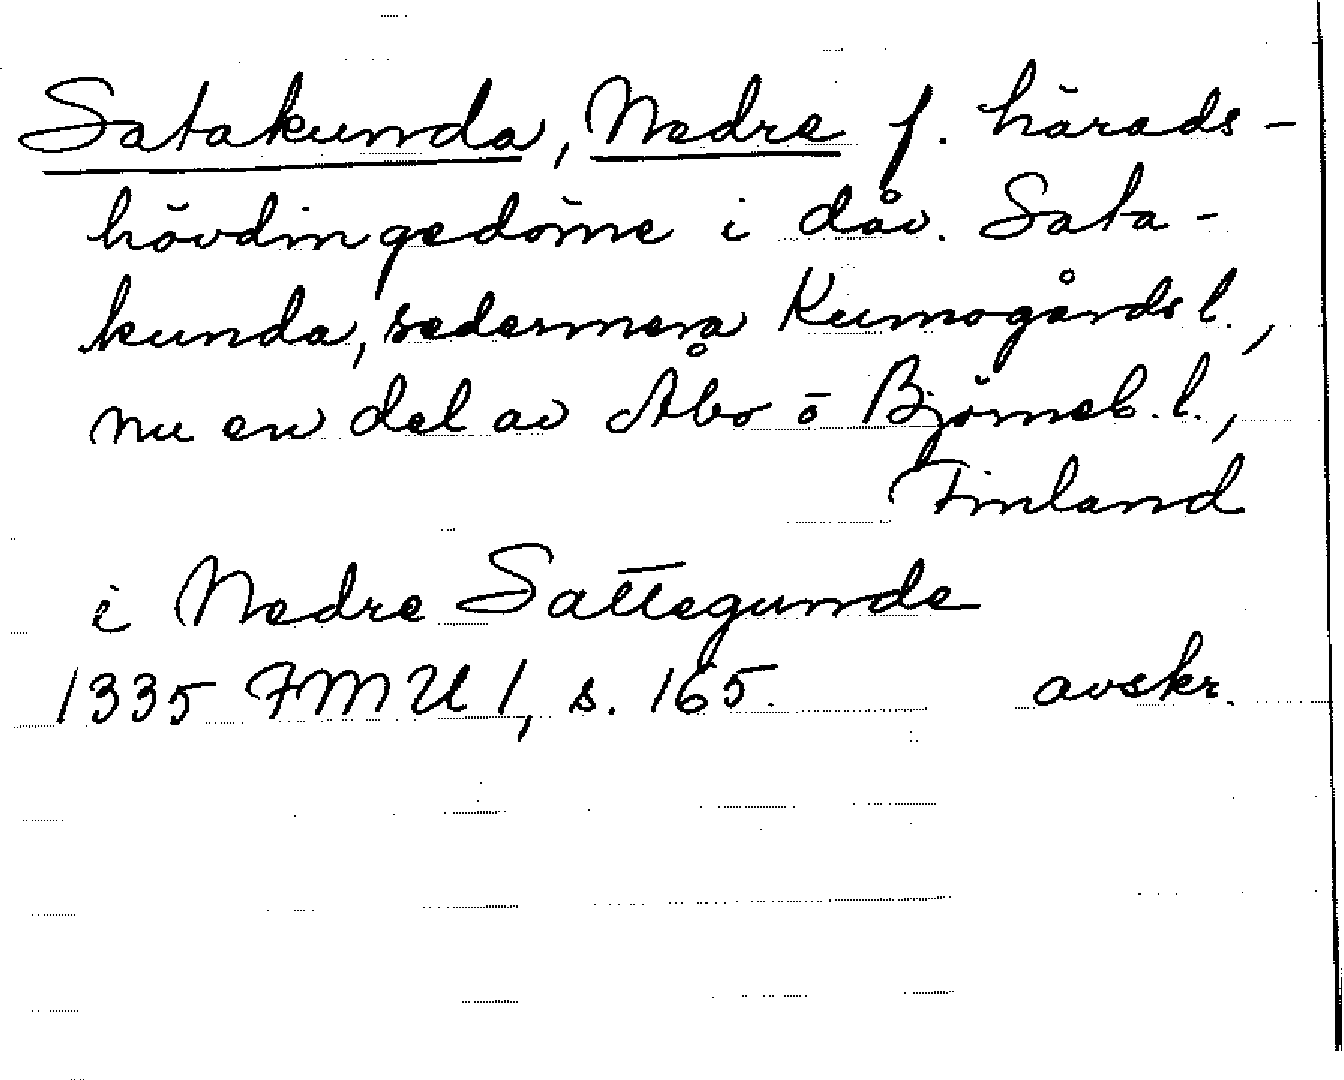 Satakunda, Nedre f. härads-
hövdingedöme i dåv. Sata-
kunda, sedermera Kumogårds l.,
nu en del av Åbo o Björneb. l.,
Finland
i Nedre Sattegunde
1335 FMU 1, s. 165. avskr.